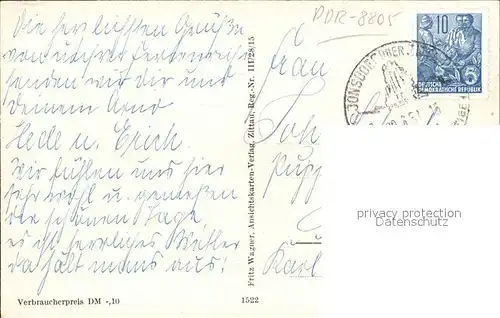 Die herzlichsten Grüße
von unserer Ferienreise
senden wir dir und
deinem Arno
Hede u. Erich.
Wir fühlen uns hier
sehr wohl u. genießen
die schönen Tage
es ist herrliches Wetter
da hält mans aus!
Verbraucherpreis DM -,10
1522
Fritz Wagner, Ansichtskarten-Verlag, Zittau, Reg.-Nr. III/28/15
DDR-8805
Frau
Joh
Pupp
Karl
10
DEUTSCHE
DEMOKRATISCHE REPUBLIK
5
JONSDORF ÜBER
privacy protection
Datenschutz